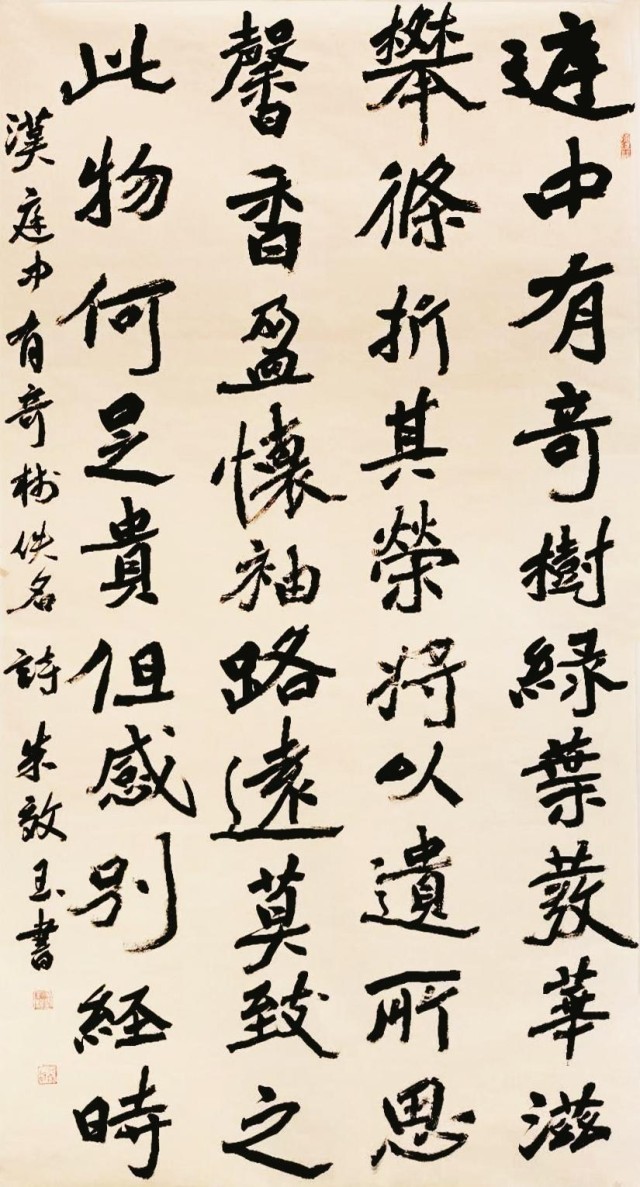 庭中有奇樹綠葉發華滋
攀條折其榮將以遺所思
馨香盈懷袖路遠莫致之
此物何足貴但感別經時
漢庭中有奇樹佚名詩朱效玉書